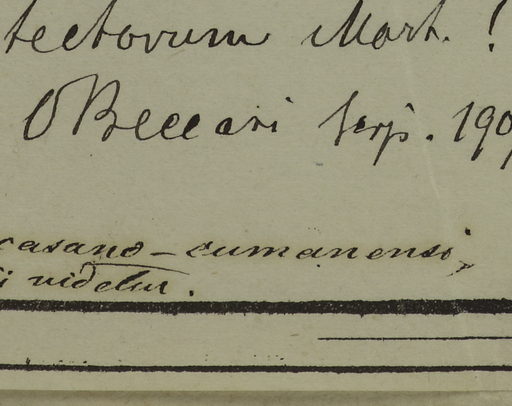 tectorum Mart. !
O Beccari Scrip. 190
casano-cumanensi,
i videtur.